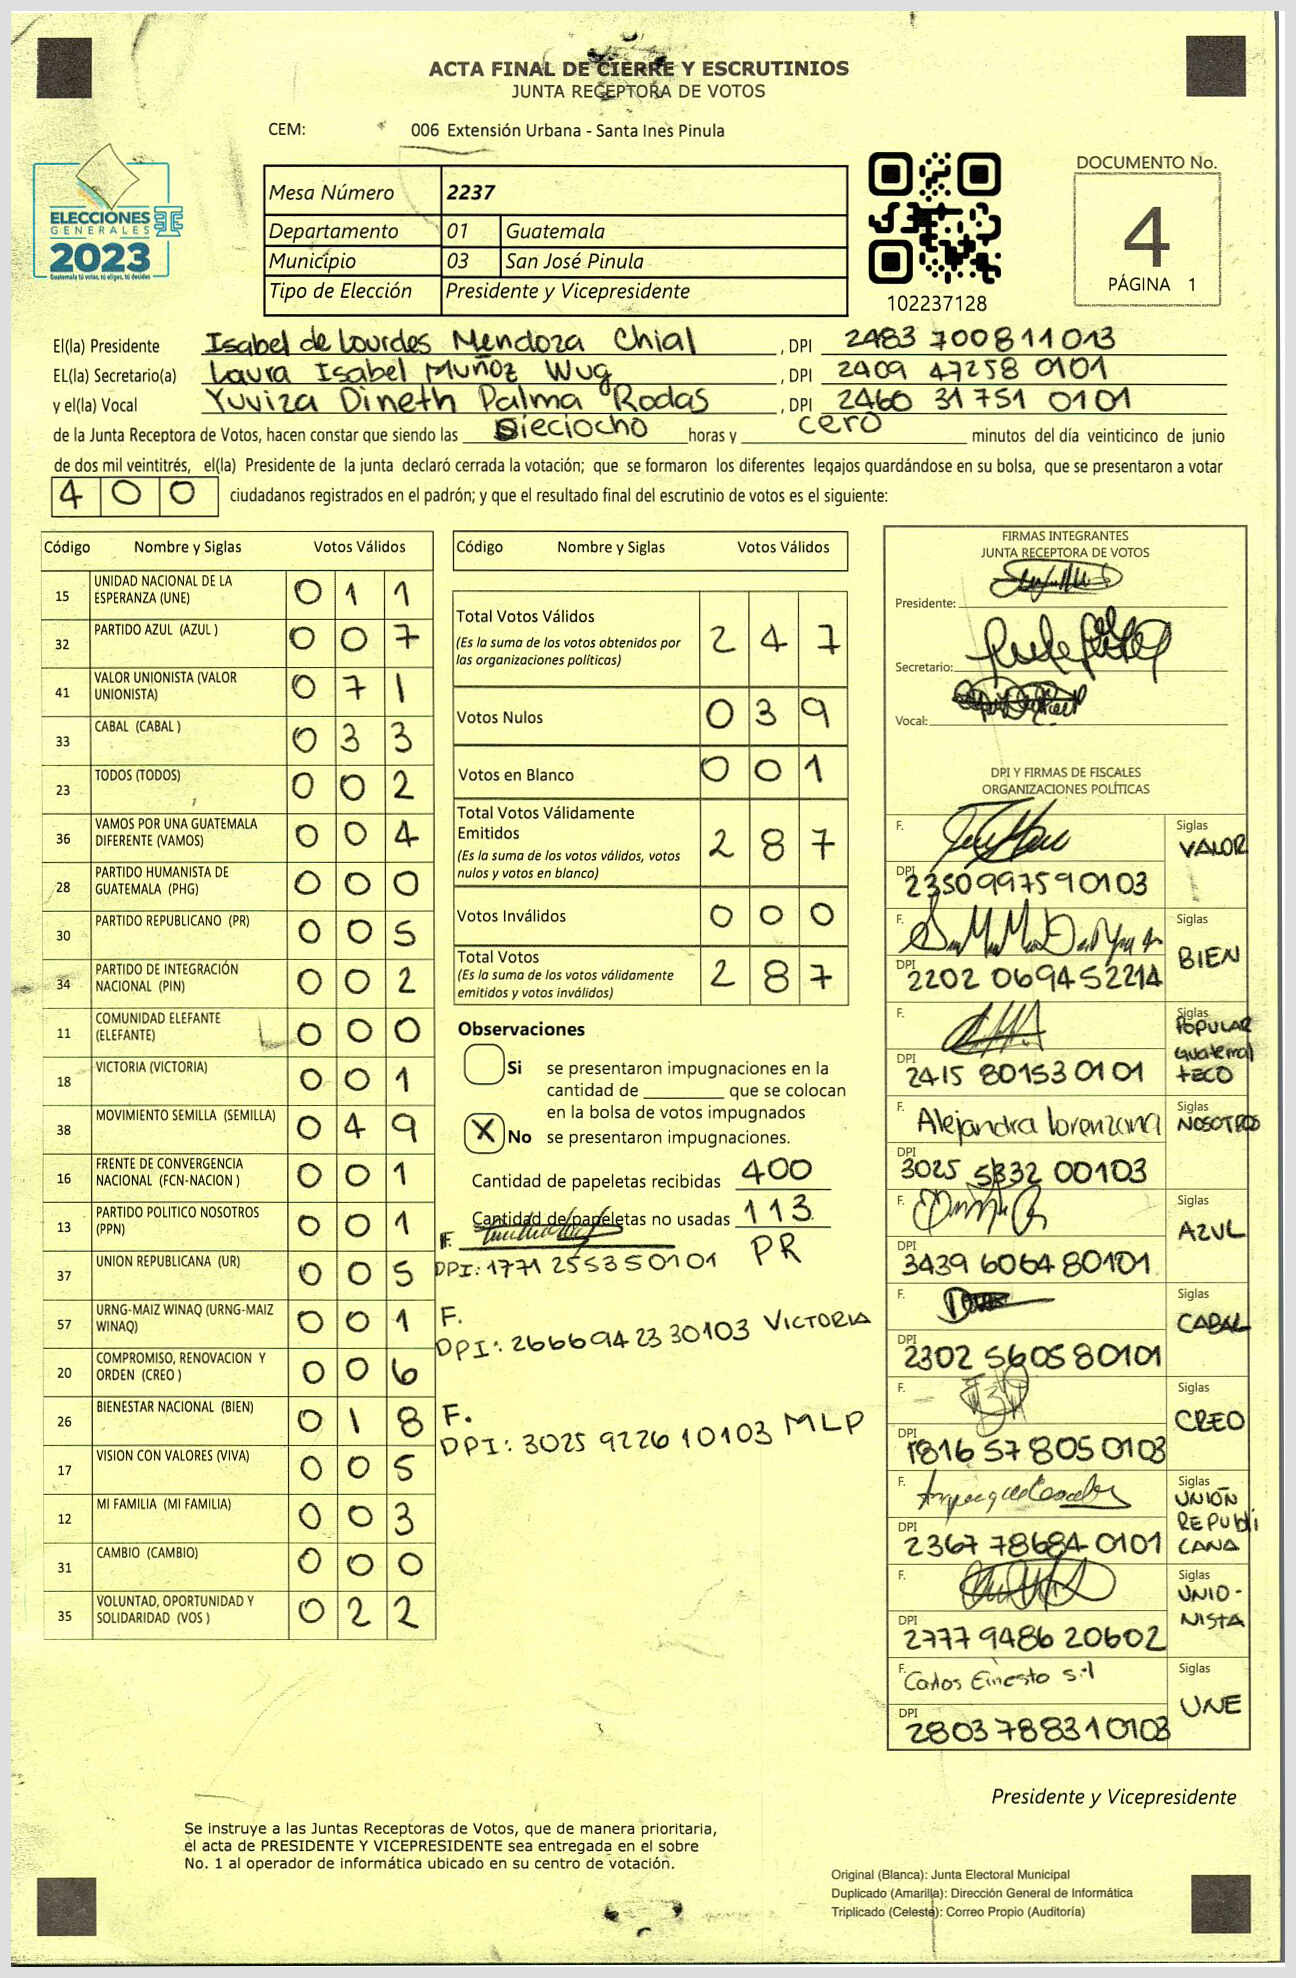 ACTA FINAL DE CIERRE Y ESCRUTINIOS
JUNTA RECEPTORA DE VOTOS
CEM: 006 Extensión Urbana - Santa Ines Pinula
ELECCIONES
GENERALES
2023
Guatemala tú votas, tú eliges, tú decides
Mesa Número 2237
Departamento 01 Guatemala
Municipio 03 San José Pinula
Tipo de Elección Presidente y Vicepresidente
102237128
DOCUMENTO No.
4
PÁGINA 1
El(la) Presidente Isabel de Lourdes Mendoza Chial , DPI 2483 70081 1013
EL(la) Secretario(a) Laura Isabel Muñoz Wug , DPI 2409 47258 0101
y el(la) Vocal Yuviza Dineth Palma Rodas , DPI 2460 31751 0101
de la Junta Receptora de Votos, hacen constar que siendo las Dieciocho horas y cero minutos del día veinticinco de junio
de dos mil veintitrés, el(la) Presidente de la junta declaró cerrada la votación; que se formaron los diferentes legajos guardándose en su bolsa, que se presentaron a votar
4 0 0 ciudadanos registrados en el padrón; y que el resultado final del escrutinio de votos es el siguiente:
Código Nombre y Siglas Votos Válidos
15 UNIDAD NACIONAL DE LA ESPERANZA (UNE) 0 1 1
32 PARTIDO AZUL (AZUL ) 0 0 7
41 VALOR UNIONISTA (VALOR UNIONISTA) 0 7 1
33 CABAL (CABAL ) 0 3 3
23 TODOS (TODOS) 0 0 2
36 VAMOS POR UNA GUATEMALA DIFERENTE (VAMOS) 0 0 4
28 PARTIDO HUMANISTA DE GUATEMALA (PHG) 0 0 0
30 PARTIDO REPUBLICANO (PR) 0 0 5
34 PARTIDO DE INTEGRACIÓN NACIONAL (PIN) 0 0 2
11 COMUNIDAD ELEFANTE (ELEFANTE) 0 0 0
18 VICTORIA (VICTORIA) 0 0 1
38 MOVIMIENTO SEMILLA (SEMILLA) 0 4 9
16 FRENTE DE CONVERGENCIA NACIONAL (FCN-NACION ) 0 0 1
13 PARTIDO POLITICO NOSOTROS (PPN) 0 0 1
37 UNION REPUBLICANA (UR) 0 0 5
57 URNG-MAIZ WINAQ (URNG-MAIZ WINAQ) 0 0 1
20 COMPROMISO, RENOVACION Y ORDEN (CREO ) 0 0 6
26 BIENESTAR NACIONAL (BIEN) 0 1 8
17 VISION CON VALORES (VIVA) 0 0 5
12 MI FAMILIA (MI FAMILIA) 0 0 3
31 CAMBIO (CAMBIO) 0 0 0
35 VOLUNTAD, OPORTUNIDAD Y SOLIDARIDAD (VOS ) 0 2 2
Código Nombre y Siglas Votos Válidos
Total Votos Válidos 2 4 7
(Es la suma de los votos obtenidos por
las organizaciones políticas)
Votos Nulos 0 3 9
Votos en Blanco 0 0 1
Total Votos Válidamente
Emitidos 2 8 7
(Es la suma de los votos válidos, votos
nulos y votos en blanco)
Votos Inválidos 0 0 0
Total Votos 2 8 7
(Es la suma de los votos válidamente
emitidos y votos inválidos)
Observaciones
Si se presentaron impugnaciones en la
cantidad de ________ que se colocan
en la bolsa de votos impugnados
X No se presentaron impugnaciones.
Cantidad de papeletas recibidas 400
Cantidad de papeletas no usadas 113
F. PR
DPI: 1771 25535 0101
F.
DPI: 2666942330103 VICTORIA
F.
DPI: 3025 9226 10103 MLP
FIRMAS INTEGRANTES
JUNTA RECEPTORA DE VOTOS
Presidente:
Secretario:
Vocal:
DPI Y FIRMAS DE FISCALES
ORGANIZACIONES POLÍTICAS
F. Siglas VALOR
DPI 2350997590103
F. Siglas BIEN
DPI 2202 069452214
F. Siglas POPULAR Guatemal TECO
DPI 2415 801530101
F. Alejandra Lorenzana Siglas NOSOTROS
DPI 3025 5332 00103
F. Siglas AZUL
DPI 3439 606480101
F. Siglas CABAL
DPI 2302 560580101
F. Siglas CREO
DPI 1816 57805 0103
F. Siglas UNIÓN REPUbli CANA
DPI 2367 78684 0101
F. Siglas UNIO- NISTA
DPI 2777 9486 20602
F. Carlos Ernesto Siglas UNE
DPI 2803 788310103
Presidente y Vicepresidente
Se instruye a las Juntas Receptoras de Votos, que de manera prioritaria,
el acta de PRESIDENTE Y VICEPRESIDENTE sea entregada en el sobre
No. 1 al operador de informática ubicado en su centro de votación.
Original (Blanca): Junta Electoral Municipal
Duplicado (Amarilla): Dirección General de Informática
Triplicado (Celeste): Correo Propio (Auditoría)